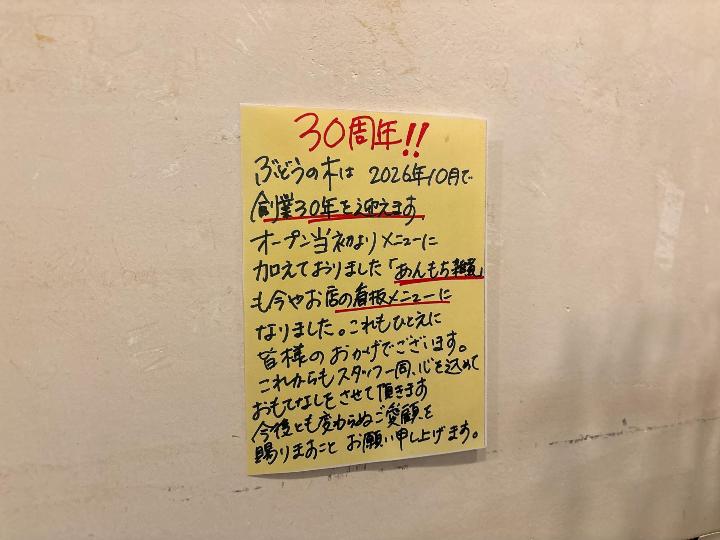 30周年!!
ぶどうの木は 2026年10月で
創業30年を迎えます
オープン当初よりメニューに
加えておりました「あんもち雑煮」
も今やお店の看板メニューに
なりました。これもひとえに
皆様のおかげでございます。
これからもスタッフ一同、心を込めて
おもてなしをさせて頂きます
今後とも変わらぬご愛顧を
賜りますこと お願い申し上げます。